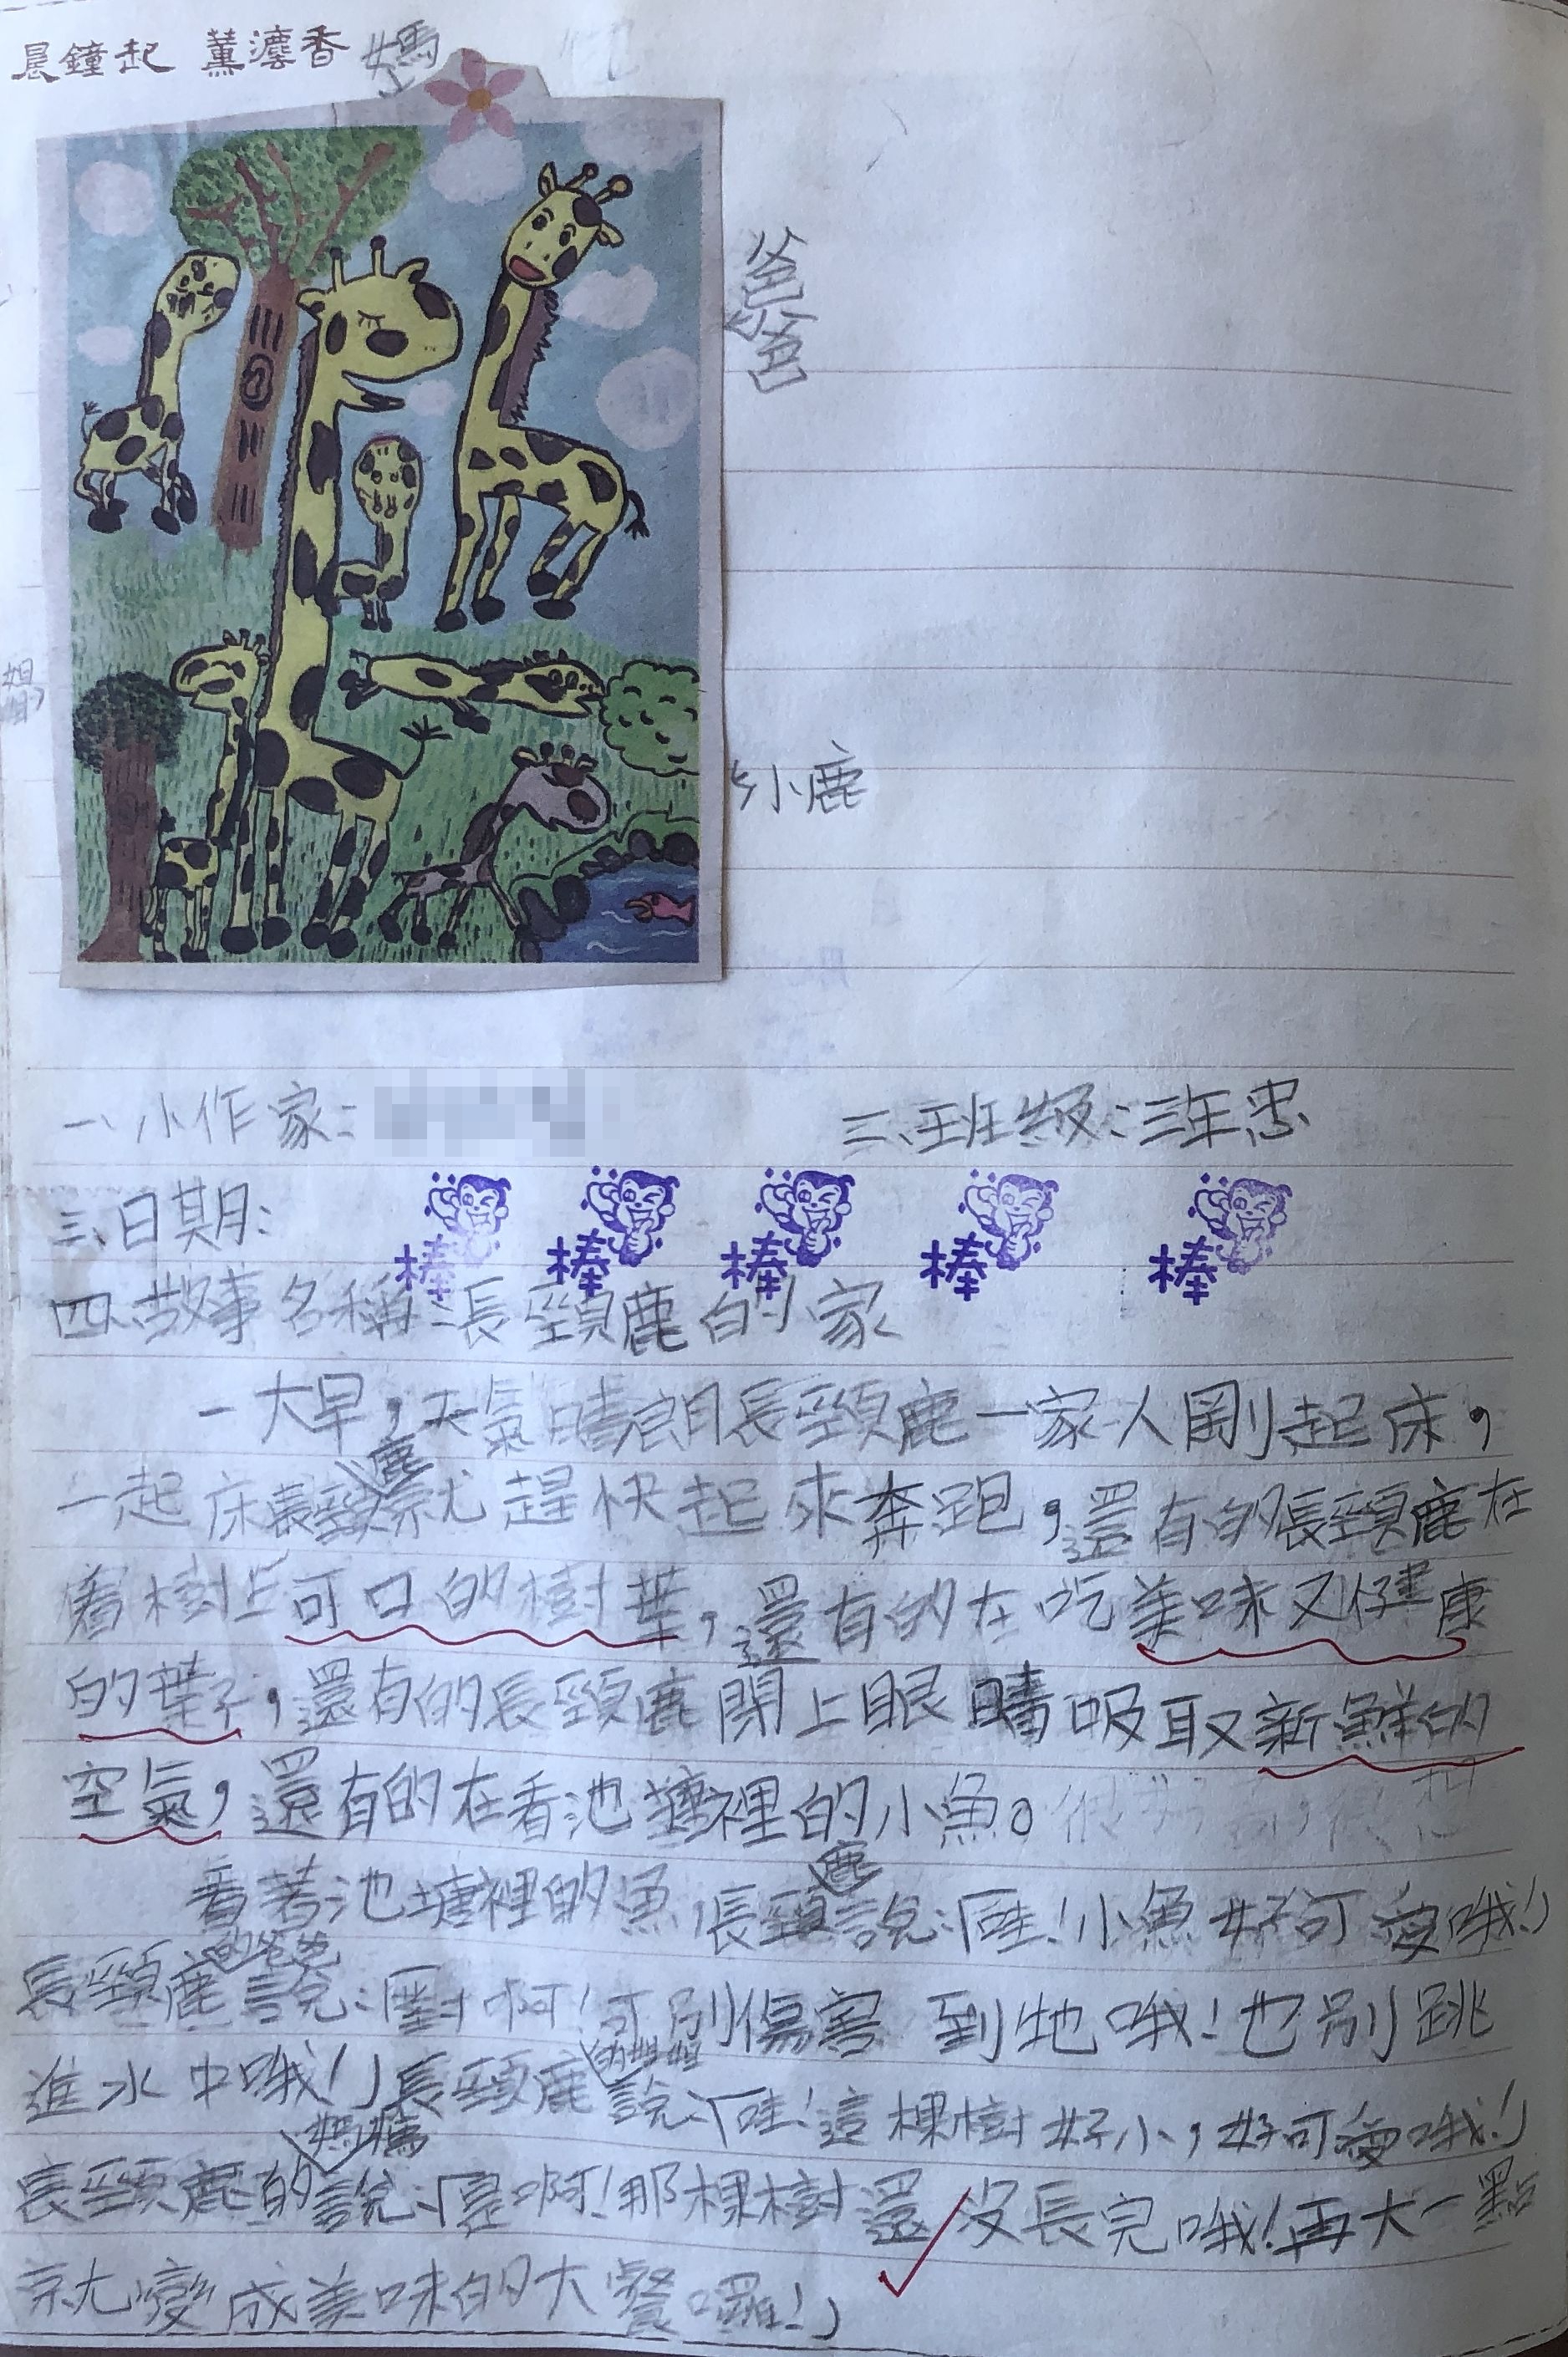 晨鐘起 薰瀀香
媽
爸爸
姐姐
小鹿
一、小作家:
二、班級:三年忠
三、日期:
棒 棒 棒 棒 棒
四、故事名稱:長頸鹿的家
一大早,天氣晴朗長頸鹿一家人剛起床,
一起床長頸鹿就趕快起來奔跑,還有的長頸鹿在
看樹上可口的樹葉,還有的在吃美味又健康
的葉子,還有的長頸鹿閉上眼睛吸取新鮮的
空氣,還有的在看池塘裡的小魚。
看著池塘裡的魚,長頸鹿說:「哇!小魚好可愛哦!」
長頸鹿的爸爸說:「對啊!可別傷害到牠哦!也別跳
進水中哦!」長頸鹿的姐姐說:「哇!這棵樹好小,好可愛哦!」
長頸鹿的媽媽說:「是啊!那棵樹還沒長完哦!再大一點
就變成美味的大餐囉!」